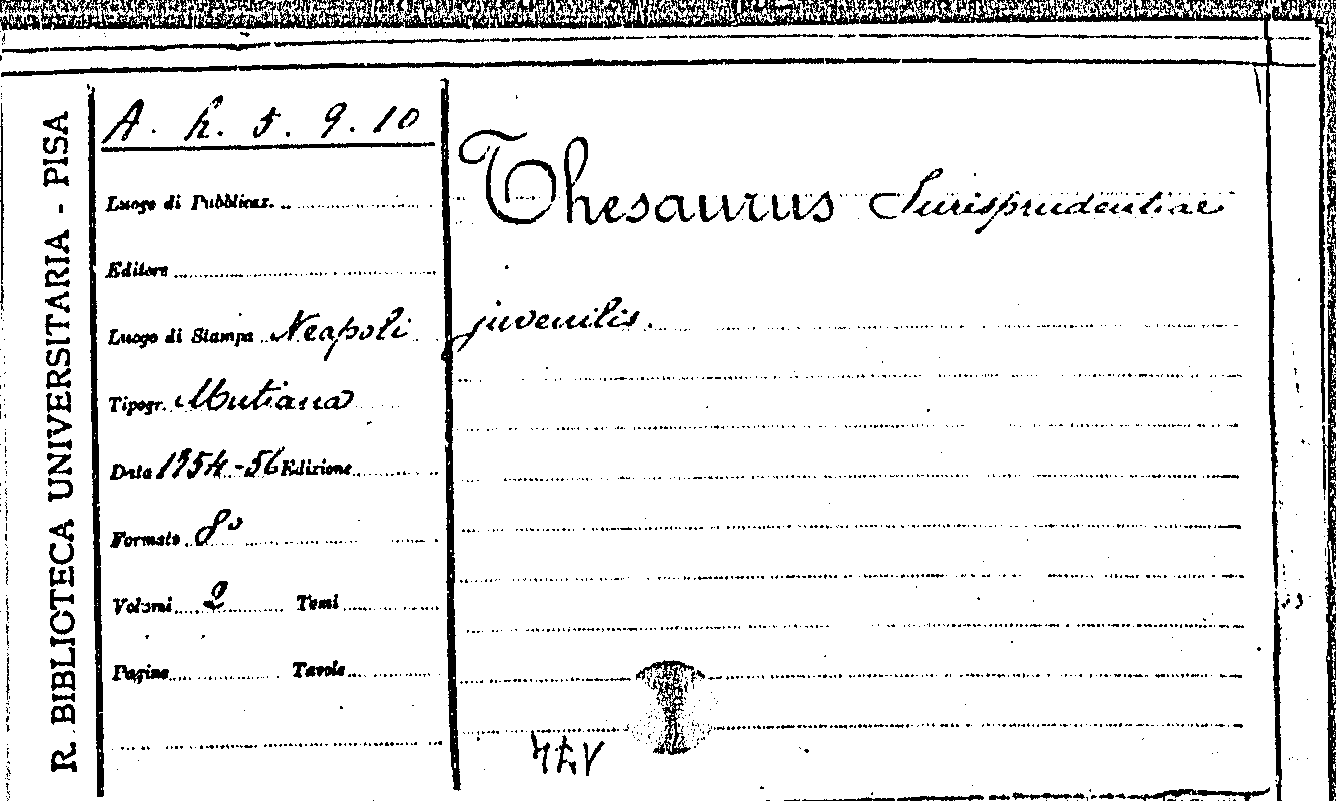 R. BIBLIOTECA UNIVERSITARIA - PISA
A. h. 5. 9. 10
Luogo di Pubblicaz.
Editore
Luogo di Stampa Neapoli
Tipogr. Mutiana
Data 1754-56 Edizione
Formato 8º
Volumi 2 Tomi
Pagine Tavole
Thesaurus Jurisprudentiae
juvenilis.